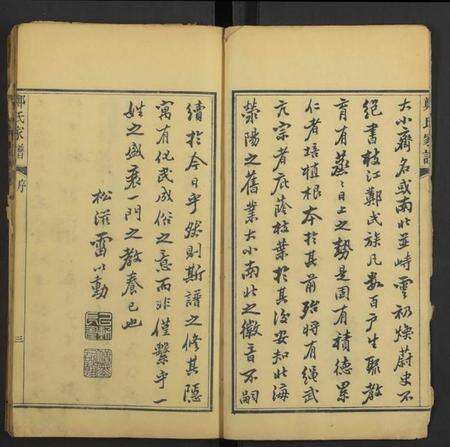 大小齊名或南北並峙雲礽煥蔚史不
絕書枝江鄭氏族凡數百戶生聚教
育有蒸蒸日上之勢是固有積德累
仁者培植根本於其前殆將有繩武
亢宗者庇蔭枝葉於其後安知北海
滎陽之舊業大小南北之徽音不嗣
鄭氏家譜
續於今日乎然則斯譜之修其隱
寓有化民成俗之意而非僅繫乎一
姓之盛衰一門之教養已也
松滋雷以動
鄭氏家譜
序
三